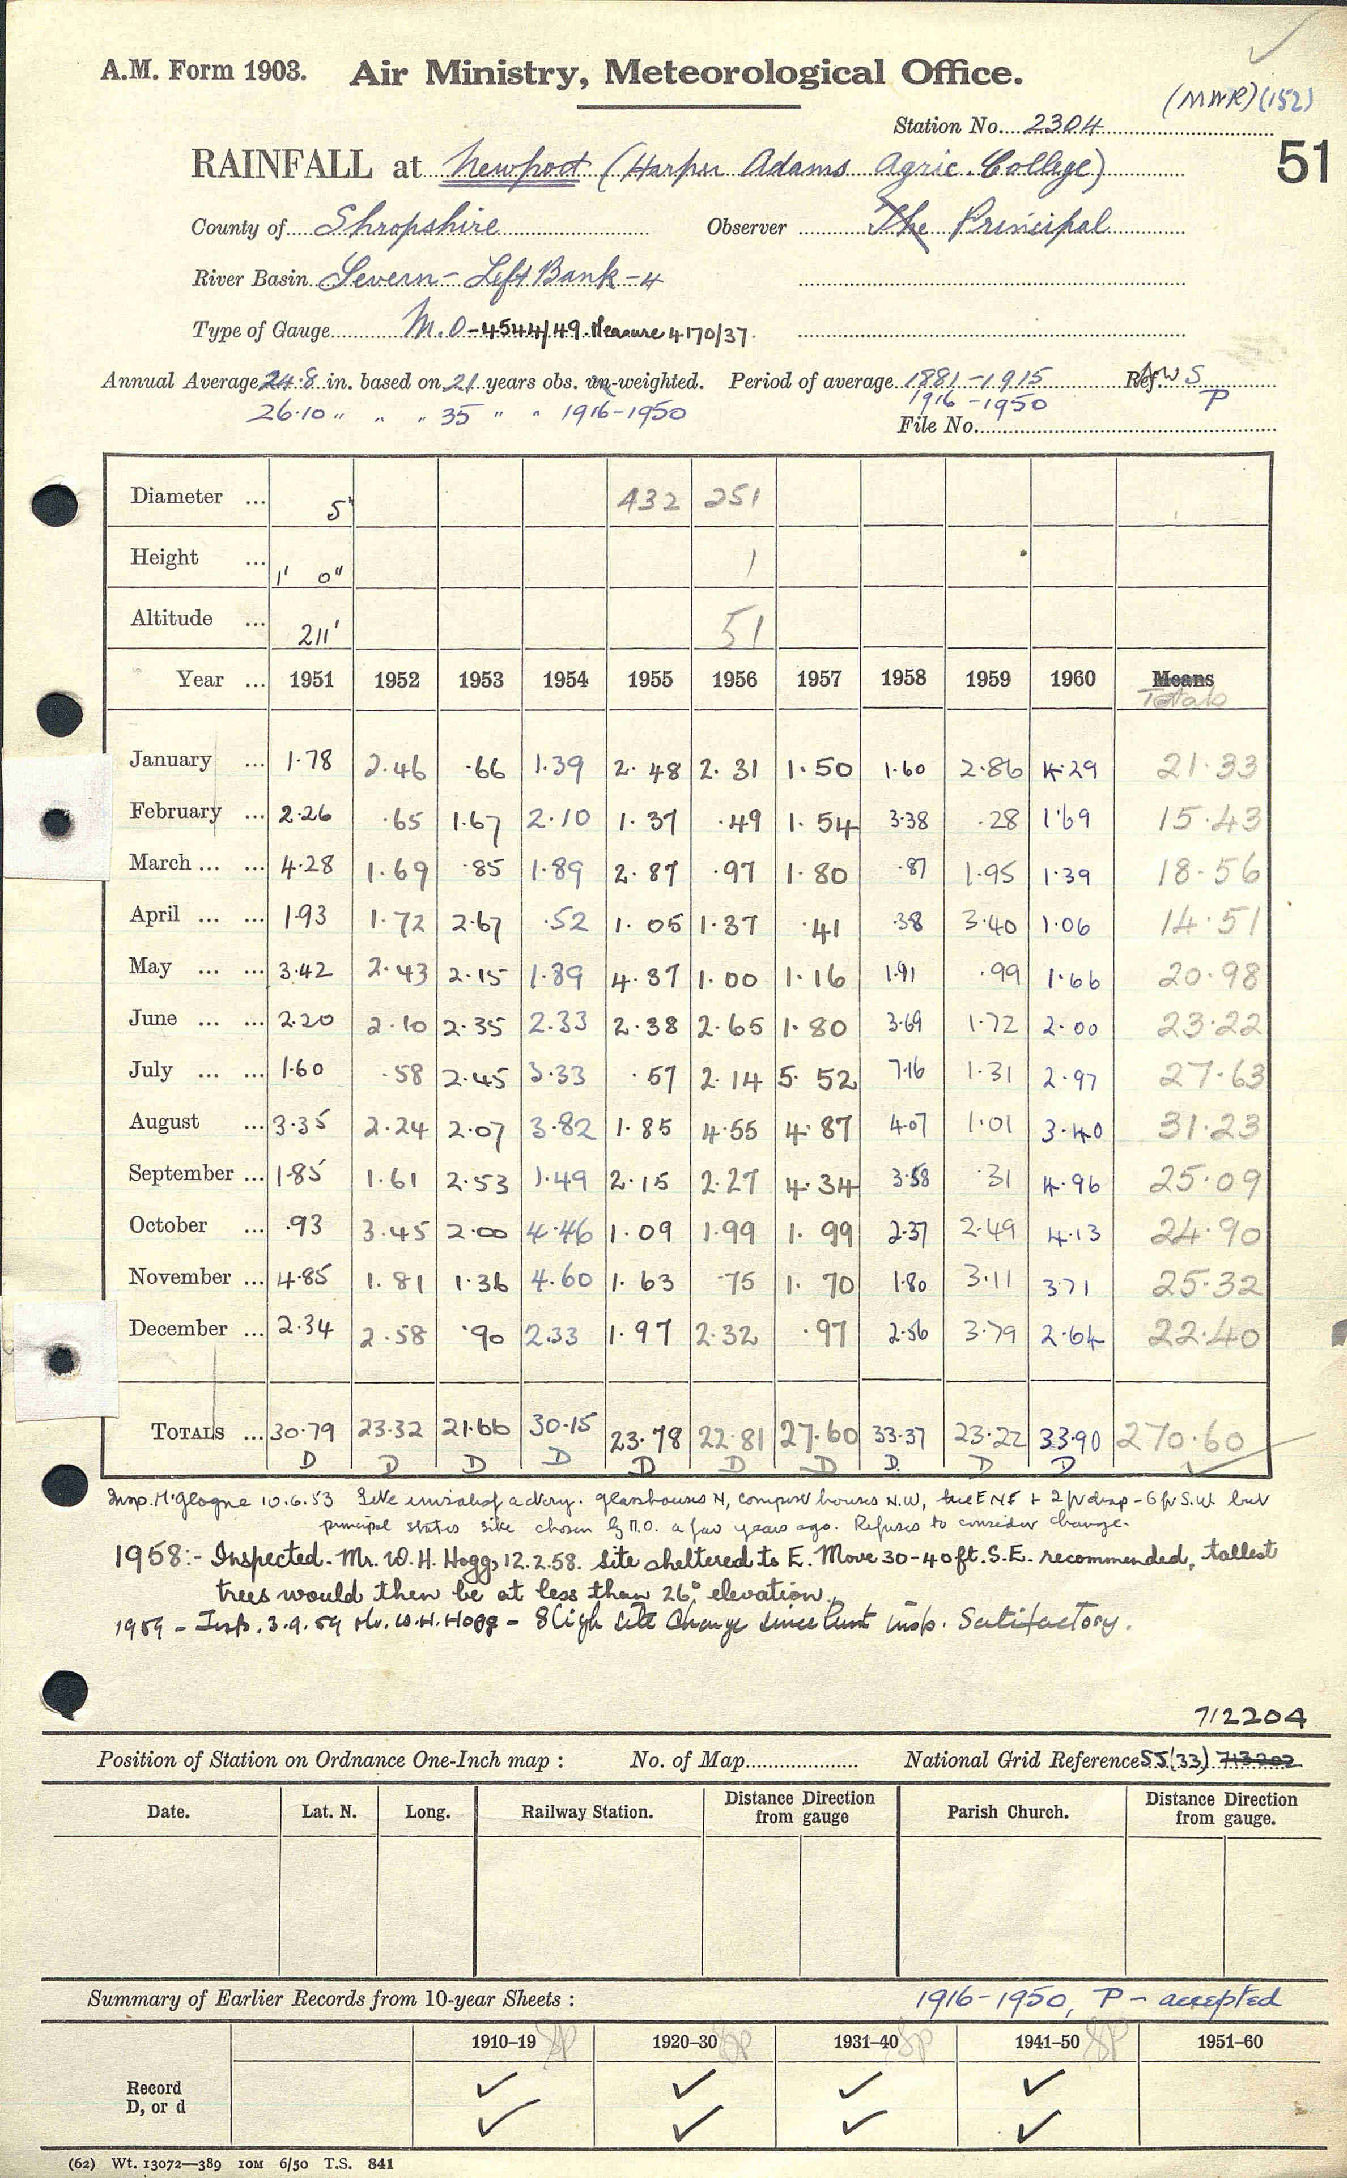 (MWR) (152)
A.M. Form 1903. Air Ministry, Meteorological Office.
Station No. 2304
51
RAINFALL at Newport (Harper Adams Agric. College)
County of Shropshire Observer The Principal
River Basin Severn - Left Bank - 4
Type of Gauge M.O - 4544/49. Measure 4170/37
Annual Average 24.8 in. based on 21 years obs. un-weighted. Period of average 1881-1915 Ref. S
26.10 " " " 35 " " 1916-1950 1916-1950 P
File No.
Diameter ... 5" 432 251
Height ... 1' 0" 1
Altitude ... 211' 51
Year ... 1951 1952 1953 1954 1955 1956 1957 1958 1959 1960 Means
Totals
January ... 1.78 2.46 .66 1.39 2.48 2.31 1.50 1.60 2.86 4.29 21.33
February ... 2.26 .65 1.67 2.10 1.37 .49 1.54 3.38 .28 1.69 15.43
March ... ... 4.28 1.69 .85 1.89 2.87 .97 1.80 .87 1.95 1.39 18.56
April ... ... 1.93 1.72 2.67 .52 1.05 1.37 .41 .38 3.40 1.06 14.51
May ... ... 3.42 2.43 2.15 1.89 4.37 1.00 1.16 1.91 .99 1.66 20.98
June ... ... 2.20 2.10 2.35 2.33 2.38 2.65 1.80 3.69 1.72 2.00 23.22
July ... ... 1.60 .58 2.45 3.33 .57 2.14 5.52 7.16 1.31 2.97 27.63
August ... 3.35 2.24 2.07 3.82 1.85 4.55 4.87 4.07 1.01 3.40 31.23
September ... 1.85 1.61 2.53 1.49 2.15 2.27 4.34 3.58 .31 4.96 25.09
October ... .93 3.45 2.00 4.46 1.09 1.99 1.99 2.37 2.49 4.13 24.90
November ... 4.85 1.81 1.36 4.60 1.63 .75 1.70 1.80 3.11 3.71 25.32
December ... 2.34 2.58 .90 2.33 1.97 2.32 .97 2.56 3.79 2.64 22.40
TOTALS ... 30.79 23.32 21.66 30.15 23.78 22.81 27.60 33.37 23.22 33.90 270.60
D D D D D D D D D D
Insp. 10.6.53 Site unsatisfactory. glasshouses N, compost houses N.W, tree ENE + 2 - 6 ft S.W. but
principal states site chosen by M.O. a few years ago. Refuses to consider change.
1958:- Inspected. Mr. W.H. Hogg, 12.2.58. Site sheltered to E. Move 30-40ft. S.E. recommended, tallest
trees would then be at less than 26° elevation.
1959 - Insp. 3.9.59 Mr. W.H. Hogg - Sligh site change since last insp. Satisfactory.
712204
Position of Station on Ordnance One-Inch map : No. of Map National Grid Reference SJ(33) 713202
Date. Lat. N. Long. Railway Station. Distance Direction from gauge Parish Church. Distance Direction from gauge.
Summary of Earlier Records from 10-year Sheets : 1916-1950, P - accepted
1910-19 SP 1920-30 SP 1931-40 SP 1941-50 SP 1951-60
Record ✓ ✓ ✓ ✓
D, or d ✓ ✓ ✓ ✓
(62) Wt. 13072—389 10M 6/50 T.S. 841